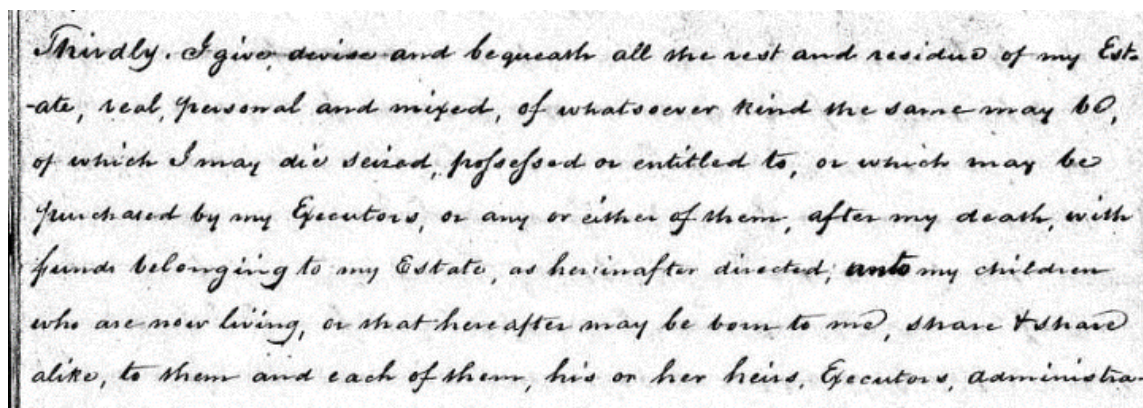 Thirdly. I give, devise and bequeath all the rest and residue of my Est-
-ate, real, personal and mixed, of whatsoever kind the same may be,
of which I may die seized, possessed or entitled to, or which may be
purchased by my Executors, or any or either of them, after my death, with
funds belonging to my Estate, as hereinafter directed; unto my children
who are now living, or that hereafter may be born to me, share & share
alike, to them and each of them, his or her heirs, Executors, administra-